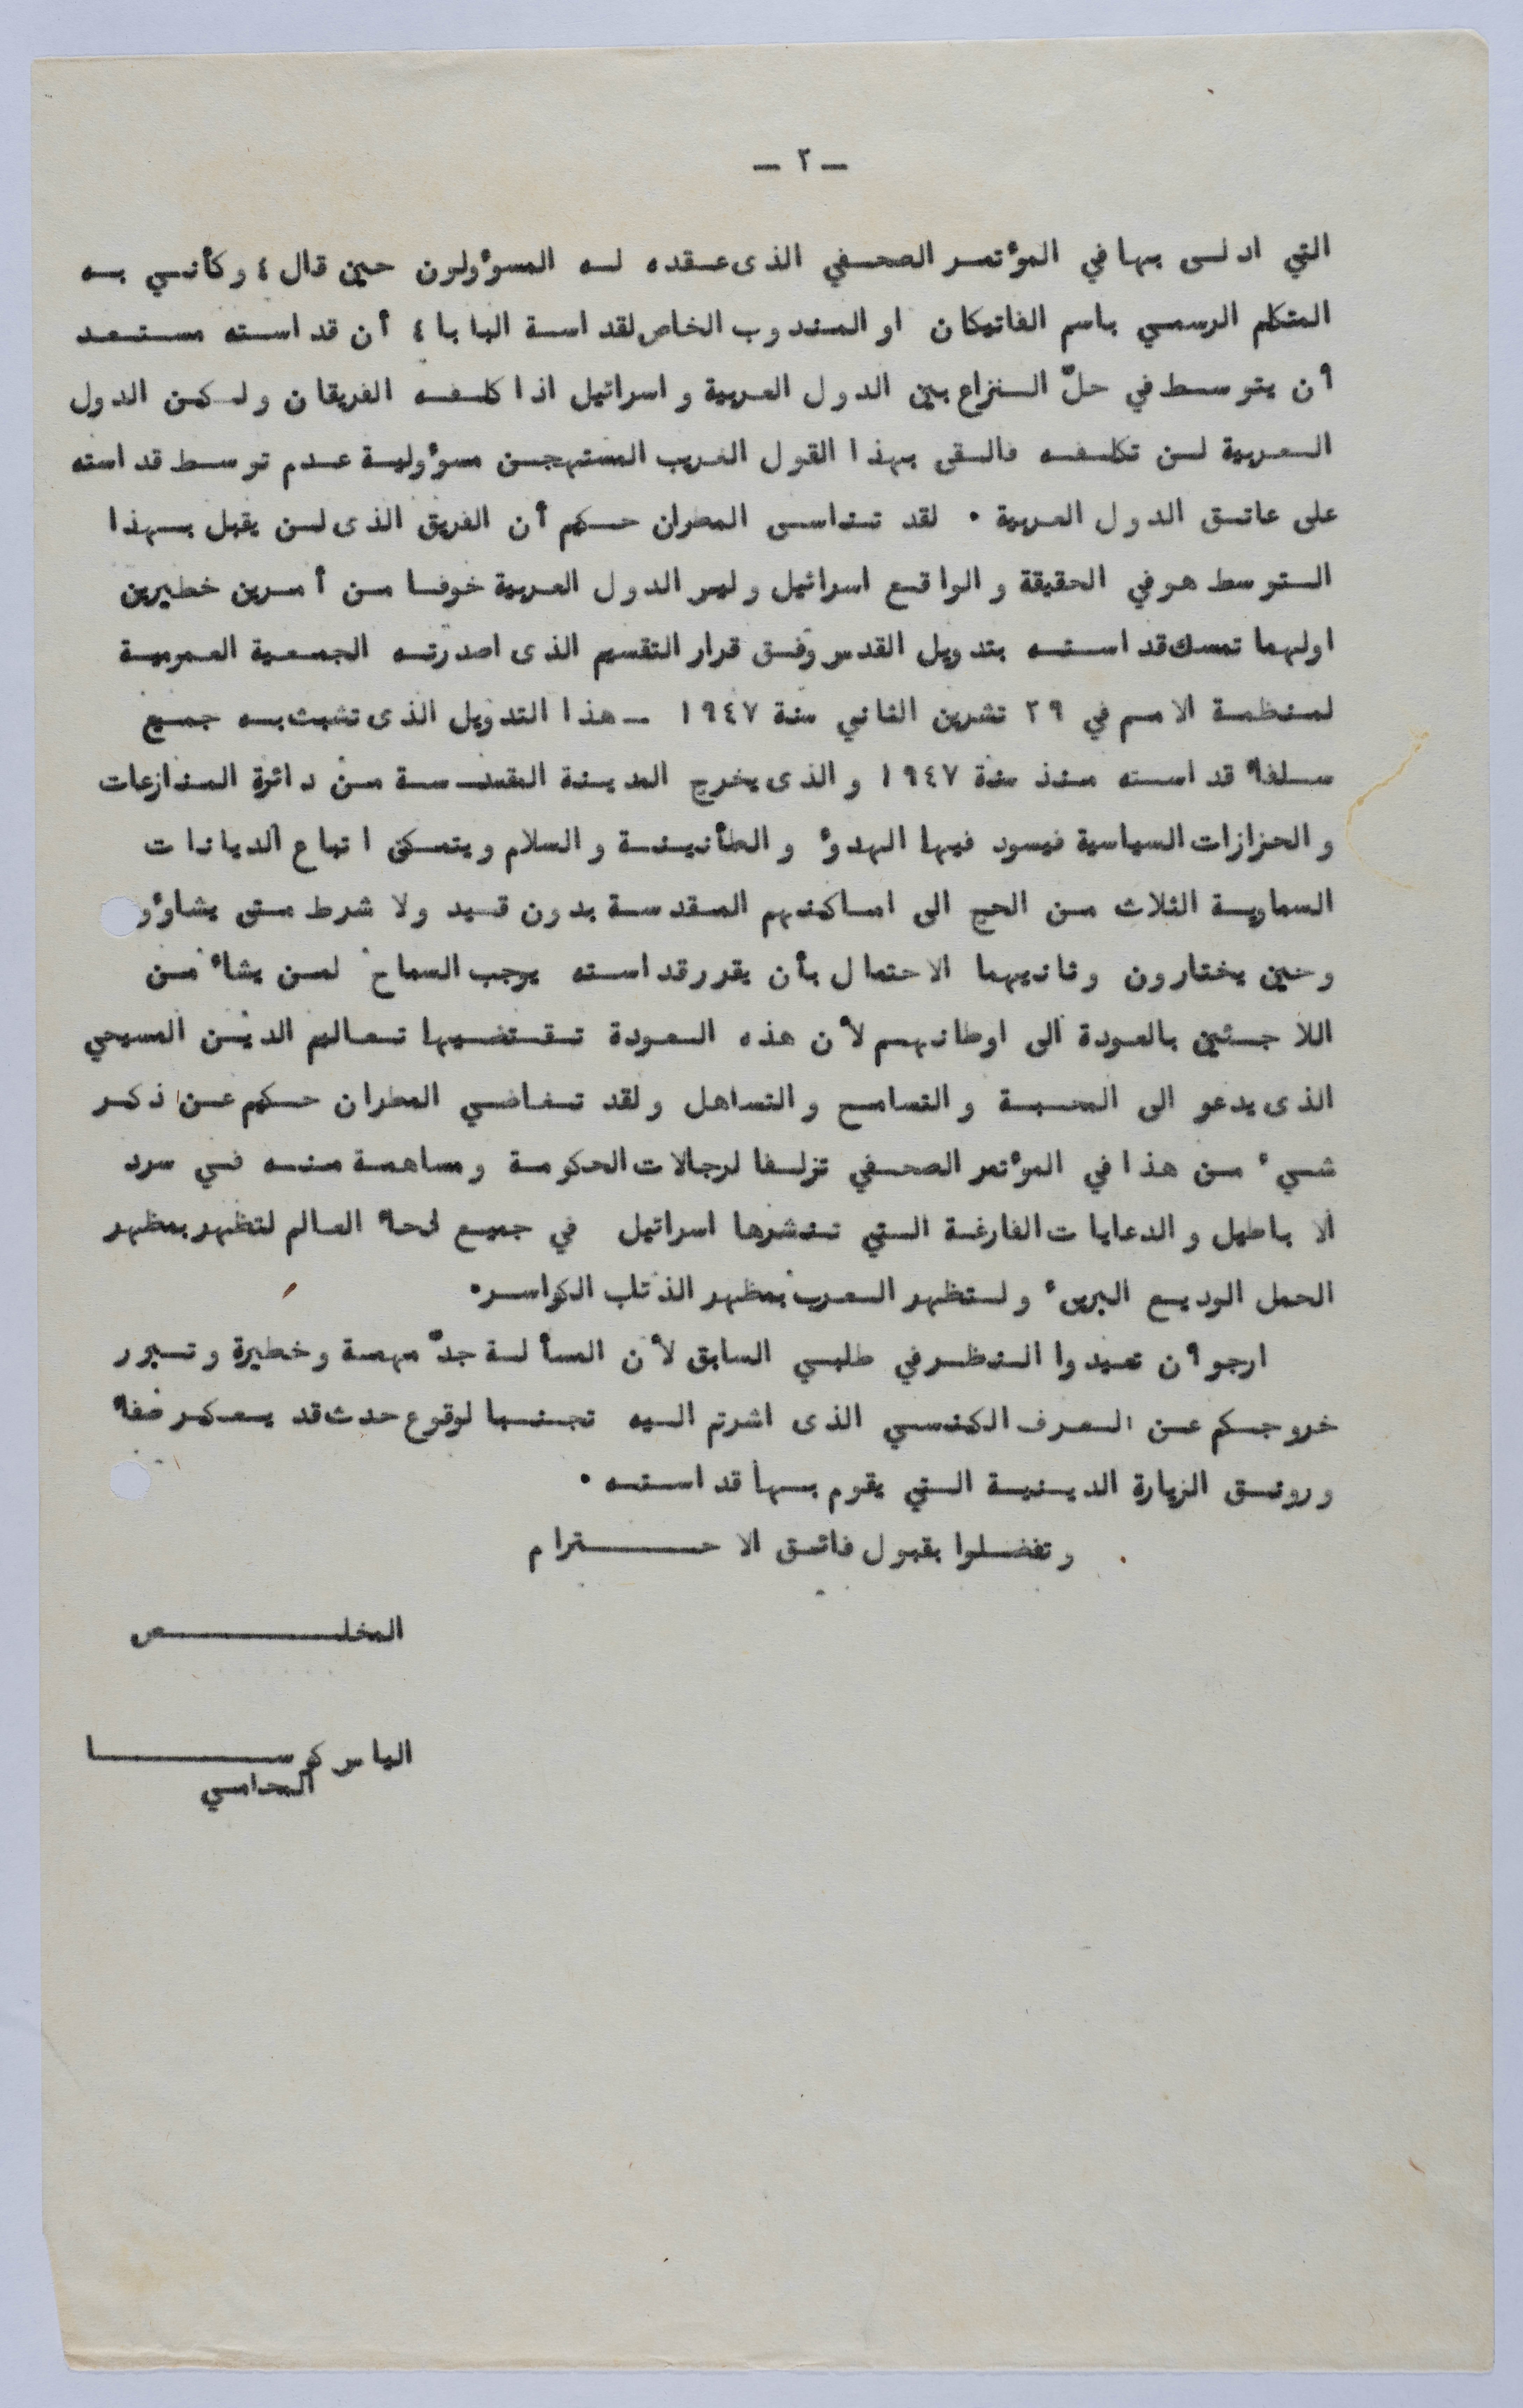 — ٢ —
التي ادلى بها في المؤتمر الصحفي الذى عقده له المسوؤولون حين قال ، وكأني به
المتكلم الرسمي باسم الفاتيكان او المندوب الخاص لقداسة البابا ، أن قداسته مستعد
لأن يتوسط في حلّ النزاع بين الدول العربية واسرائيل اذا كلفه الفريقان ولكن الدول
العربية لن تكلفه فالقى بهذا القول الغريب المستهجن مسوؤولية عدم توسط قداسته
على عاتق الدول العربية . لقد تناسى المطران حكيم أن الفريق الذى لن يقبل بهذا
التوسط هو في الحقيقة والواقع اسرائيل وليس الدول العربية خوفا من أمرين خطيرين
اولهما تمسك قداسته بتدويل القدس وفق قرار التقسيم الذى اصدرته الجمعية العمومية
لمنظمة الامم في ٢٩ تشرين الثاني سنة ١٩٤٧ — هذا التدويل الذى تشبث به جميع
سلفاء قداسته منذ سنة ١٩٤٧ والذى يخرج المدينة المقدسة من دائرة المنازعات
والحزازات السياسية فيسود فيها الهدؤ والطأنينة والسلام ويتمكن اتباع الديانات
السماوية الثلاث من الحج الى اماكنهم المقدسة بدون قيد ولا شرط متى يشاؤو
وحين يختارون وثانيهما الاحتمال بأن يقرر قداسته بوجب السماح لمن يشاء من
اللاجئين بالعودة الى اوطانهم لأن هذه العودة تقتضيها تعاليم الدين المسيحي
الذى يدعو الى المحبة والتسامح والتساهل ولقد تغاضي المطران حكيم عن ذكر
شيء من هذا في المؤتمر الصحفي تزلفا لرجالات الحكومة ومساهمة منه في سرد
الاباطيل والدعايات الفارغة التي تنشرها اسرائيل في جميع انحاء العالم لتظهر بمظهر
الحمل الوديع البرىء ولتظهر العرب بمظهر الذئاب الكواسر.
ارجو لأن تعيدوا النظر في طلبي السابق لأن المسألة جدّ مهمة وخطيرة وتبرر
خروجكم عن العرف الكنسي الذى اشرتم اليه تجنبا لوقوع حدث قد يعكر صفاء
ورونق الزيارة الدينية التي يقوم بها قداسته .
وتفضلوا بقبول فائق الاحترام
المخلص
الياس كوسا
المحامي